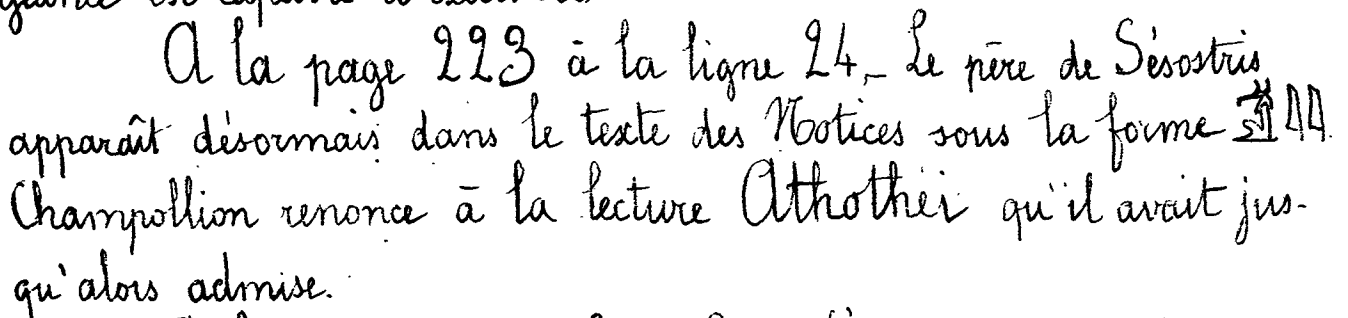 A la page 223 à la ligne 24._ Le père de Sésostris
apparaît désormais dans le texte des Notices sous la forme
Champollion renonce à la lecture Athothéi qu'il avait jus-
qu'alors admise.